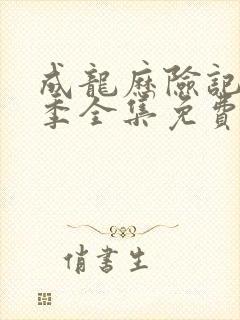 成龍歷險記
季全集免費
俏書生